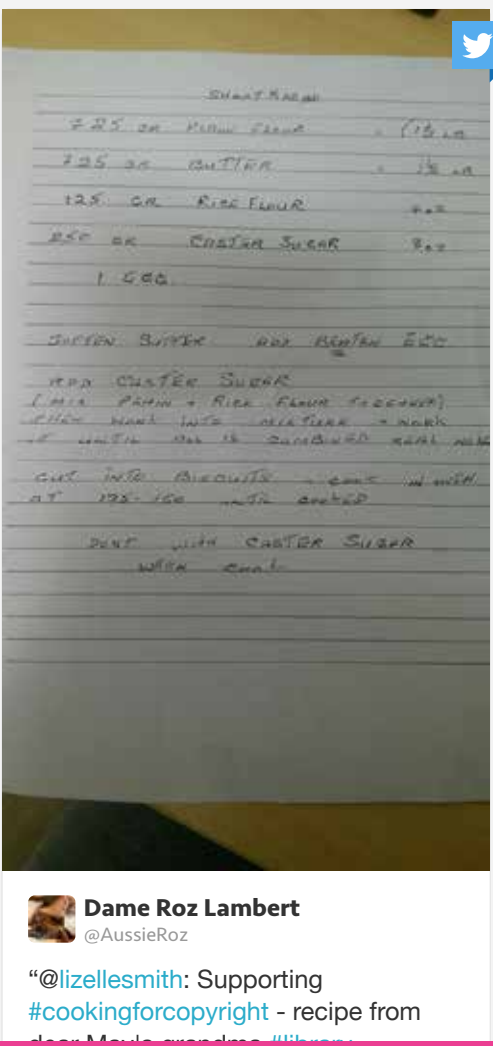 SHORTBREAD
725 GR PLAIN FLOUR = (1½ LB
725 GR BUTTER = 1½ LB
125 GR RICE FLOUR 4oz
250 GR CASTER SUGAR 8oz
1 EGG
SOFTEN BUTTER ADD BEATEN EGG
ADD CASTER SUGAR
(MIX PLAIN + RICE FLOUR TOGETHER)
THEN WORK INTO MIXTURE + WORK
IT UNTIL ALL IS COMBINED REAL
CUT INTO BISCUITS COOK IN OVEN
AT UNTIL COOKED
DUST WITH CASTER SUGAR
WHEN COOL
Dame Roz Lambert
@AussieRoz
“@lizellesmith: Supporting
#cookingforcopyright - recipe from
dear grandma #library